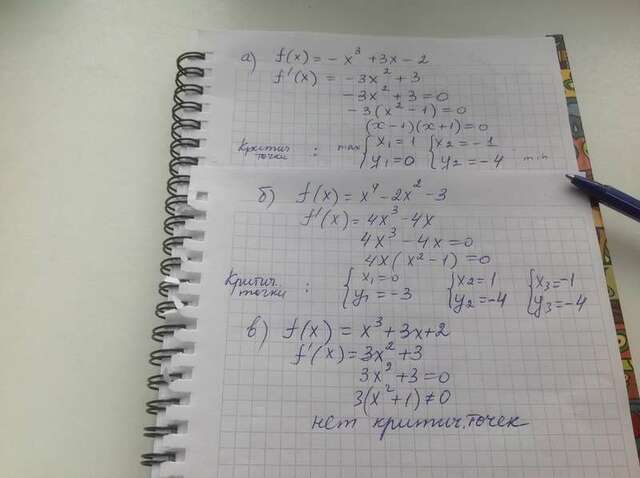 а) f(x) = - x³ + 3x - 2
f'(x) = -3x² + 3
-3x² + 3 = 0
-3(x² - 1) = 0
(x-1)(x+1) = 0
Критич. точки : max { x₁ = 1 { x₂ = -1
y₁ = 0 y₂ = -4 min
б) f(x) = x⁴ - 2x² - 3
f'(x) = 4x³ - 4x
4x³ - 4x = 0
4x(x² - 1) = 0
Критич. точки : { x₁ = 0 { x₂ = 1 { x₃ = -1
y₁ = -3 y₂ = -4 y₃ = -4
в) f(x) = x³ + 3x + 2
f'(x) = 3x² + 3
3x² + 3 = 0
3(x² + 1) ≠ 0
нет критич. точек